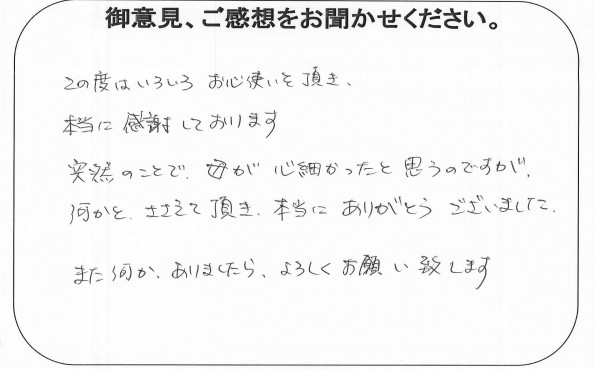 御意見、ご感想をお聞かせください。
この度はいろいろ お心使いを頂き、
本当に 感謝しております
突然のことで、母が 心細かったと 思うのですが、
何かと、ささえて 頂き、本当に ありがとう ございました。
また何か、ありましたら、よろしく お願い 致します